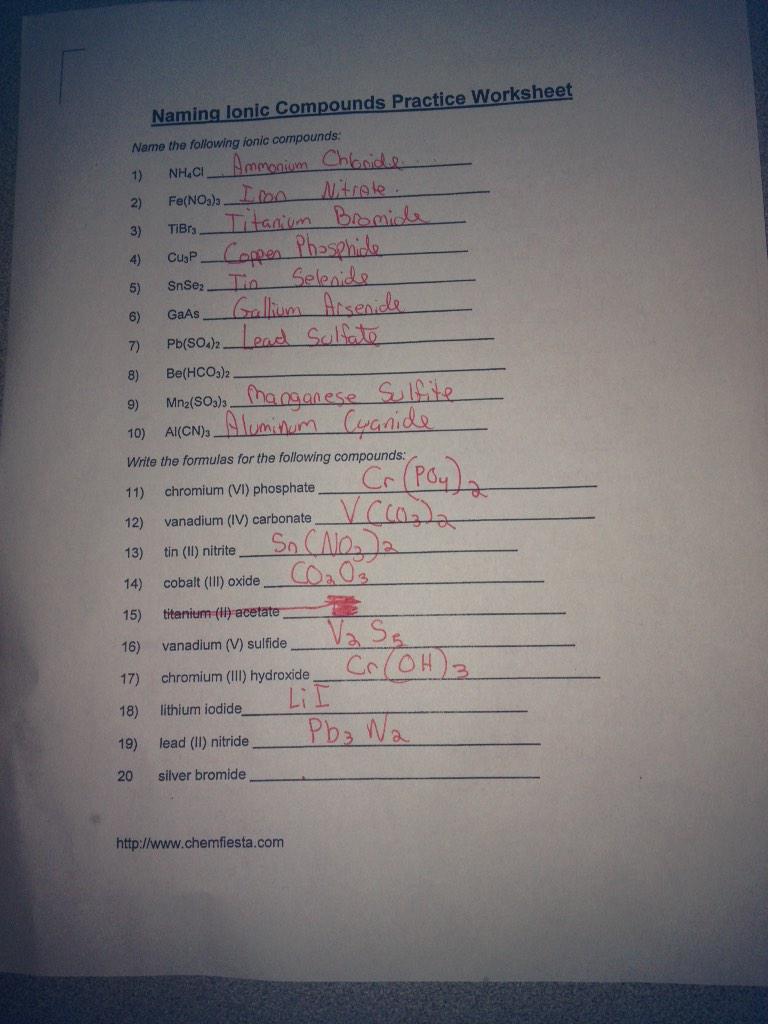 Naming Ionic Compounds Practice Worksheet
Name the following ionic compounds:
1) NH₄Cl Ammonium Chloride
2) Fe(NO₃)₃ Iron Nitrate.
3) TiBr₃ Titanium Bromide
4) Cu₃P Copper Phosphide
5) SnSe₂ Tin Selenide
6) GaAs Gallium Arsenide
7) Pb(SO₄)₂ Lead Sulfate
8) Be(HCO₃)₂
9) Mn₂(SO₃)₃ Manganese Sulfite
10) Al(CN)₃ Aluminum Cyanide
Write the formulas for the following compounds:
11) chromium (VI) phosphate Cr(PO₄)₂
12) vanadium (IV) carbonate V(CO₃)₂
13) tin (II) nitrite Sn(NO₃)₂
14) cobalt (III) oxide CO₂O₃
15) titanium (II) acetate
16) vanadium (V) sulfide V₂S₅
17) chromium (III) hydroxide Cr(OH)₃
18) lithium iodide LiI
19) lead (II) nitride Pb₃N₂
20 silver bromide
http://www.chemfiesta.com